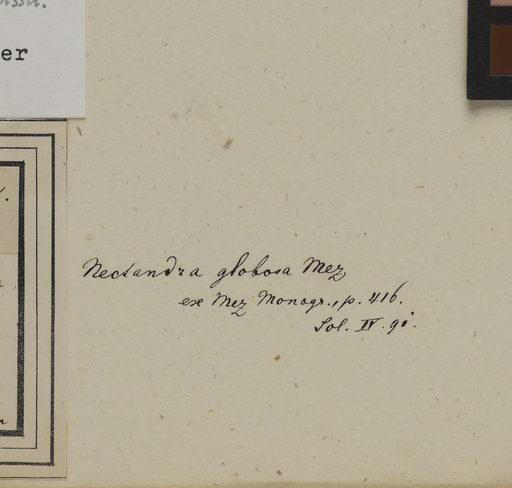 er
Nectandra globosa Mez
ex Mez Monogr., p. 416.
Sol. IV. 90.